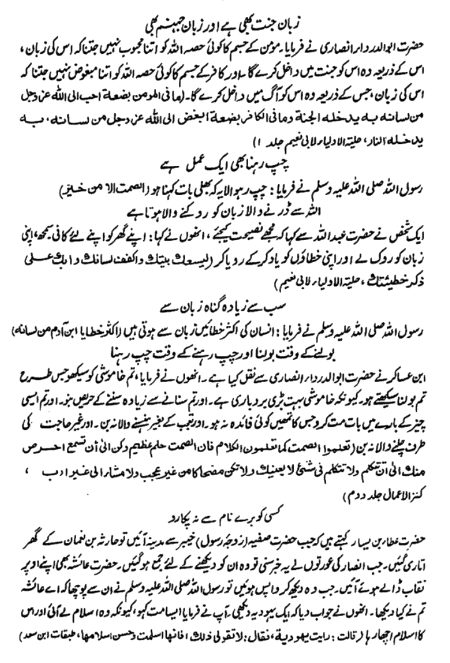 زبان جنت بھی ہے اور زبان جہنم بھی
حضرت ابوالدرداء انصاری نے فرمایا۔ مومن کے جسم کا کوئی حصہ اللہ کو اتنا محبوب نہیں جتنا کہ اس کی زبان،
اس کے ذریعہ وہ اس کو جنت میں داخل کرے گا۔ اور کافر کے جسم کا کوئی حصہ اللہ کو اتنا مبغوض نہیں جتنا کہ
اس کی زبان، جس کے ذریعہ وہ اس کو آگ میں داخل کرے گا۔ (ما فی المومن بضعة احب الی اللہ عز وجل
من لسانه به یدخله الجنة وما فی الکافر بضعة ابغض الی اللہ عز وجل من لسانه، به
یدخله النار، حلیۃ الاولیاء لابی نعیم جلد ۱)
چپ رہنا بھی ایک عمل ہے
رسول اللہ صلی اللہ علیہ وسلم نے فرمایا: چپ رہو الا یہ کہ بھلی بات کہنا ہو (الصمت الا من خیر)
اللہ سے ڈرنے والا زبان کو روکنے والا ہوتا ہے
ایک شخص نے حضرت عبداللہ سے کہا کہ مجھے نصیحت کیجئے، انھوں نے کہا: اپنے گھر کو اپنے لئے کافی سمجھ، اپنی
زبان کو روک لے اور اپنی خطاؤں کو یاد کر کے رویا کر (لیسعک بیتک واکفف لسانک وابک علی
ذکر خطیئتک، حلیۃ الاولیاء لابی نعیم)
سب سے زیادہ گناہ زبان سے
رسول اللہ صلی اللہ علیہ وسلم نے فرمایا: انسان کی اکثر خطائیں زبان سے ہوتی ہیں (اکثر خطایا ابن آدم من لسانه)
بولنے کے وقت بولنا اور چپ رہنے کے وقت چپ رہنا
ابن عساکر نے حضرت ابوالدرداء انصاری سے نقل کیا ہے۔ انھوں نے فرمایا، تم خاموشی کو سیکھو جس طرح
تم بولنا سیکھتے ہو۔ کیونکہ خاموشی بہت بڑی بردباری ہے۔ اور تم سنانے سے زیادہ سننے کے حریص بنو۔ اور تم ایسی
چیز کے بارے میں بات مت کرو جس کا تمھیں کوئی فائدہ نہ ہو۔ اور تعجب کے بغیر ہنسنے والا نہ بن۔ اور غیر حاجت کی
طرف چلنے والا نہ بن (تعلموا الصمت کما تعلمون الکلام فان الصمت حلم عظیم وکن الی أن تسمع احرص
منک الی أن تتکلم ولا تتکلم فی شئ لا یعنیک ولا تکن مضحاکا من غیر عجب ولا مشاء الی غیر ارب ،
کنز الاعمال جلد دوم)
کسی کو برے نام سے نہ پکارو
حضرت عطاء بن یسار کہتے ہیں کہ جب حضرت صفیہ (زوجۂ رسول) خیبر سے مدینہ آئیں تو حارثہ بن نعمان کے گھر
اتاری گئیں۔ جب انصار کی عورتوں نے یہ خبر سنی تو وہ ان کو دیکھنے کے لئے جمع ہو گئیں۔ حضرت عائشہ بھی اپنے اوپر
نقاب ڈالے ہوئے آئیں۔ جب وہ دیکھ کر واپس ہوئیں تو رسول اللہ صلی اللہ علیہ وسلم نے ان سے پوچھا کہ اے عائشہ
تم نے کیا دیکھا۔ انھوں نے جواب دیا کہ ایک یہودیہ دیکھی۔ آپ نے فرمایا ایسا مت کہو، کیونکہ وہ اسلام لے آئی اور اس
کا اسلام اچھا رہا (قالت: رایت یهودیة، فقال: لا تقولی ذلک، فانها اسلمت وحسن اسلامها، طبقات ابن سعد)